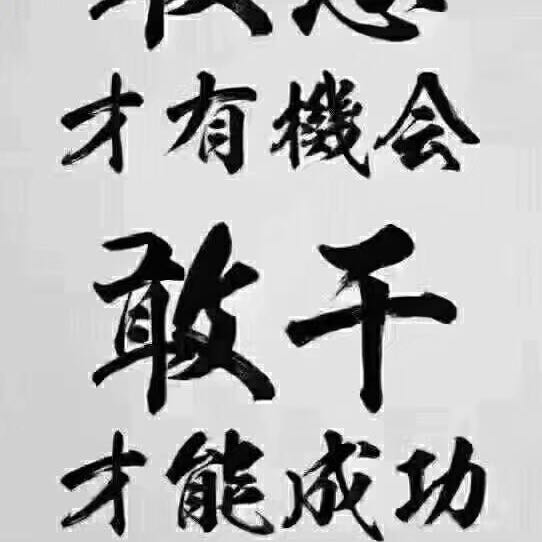 才有機会
敢干
才能成功